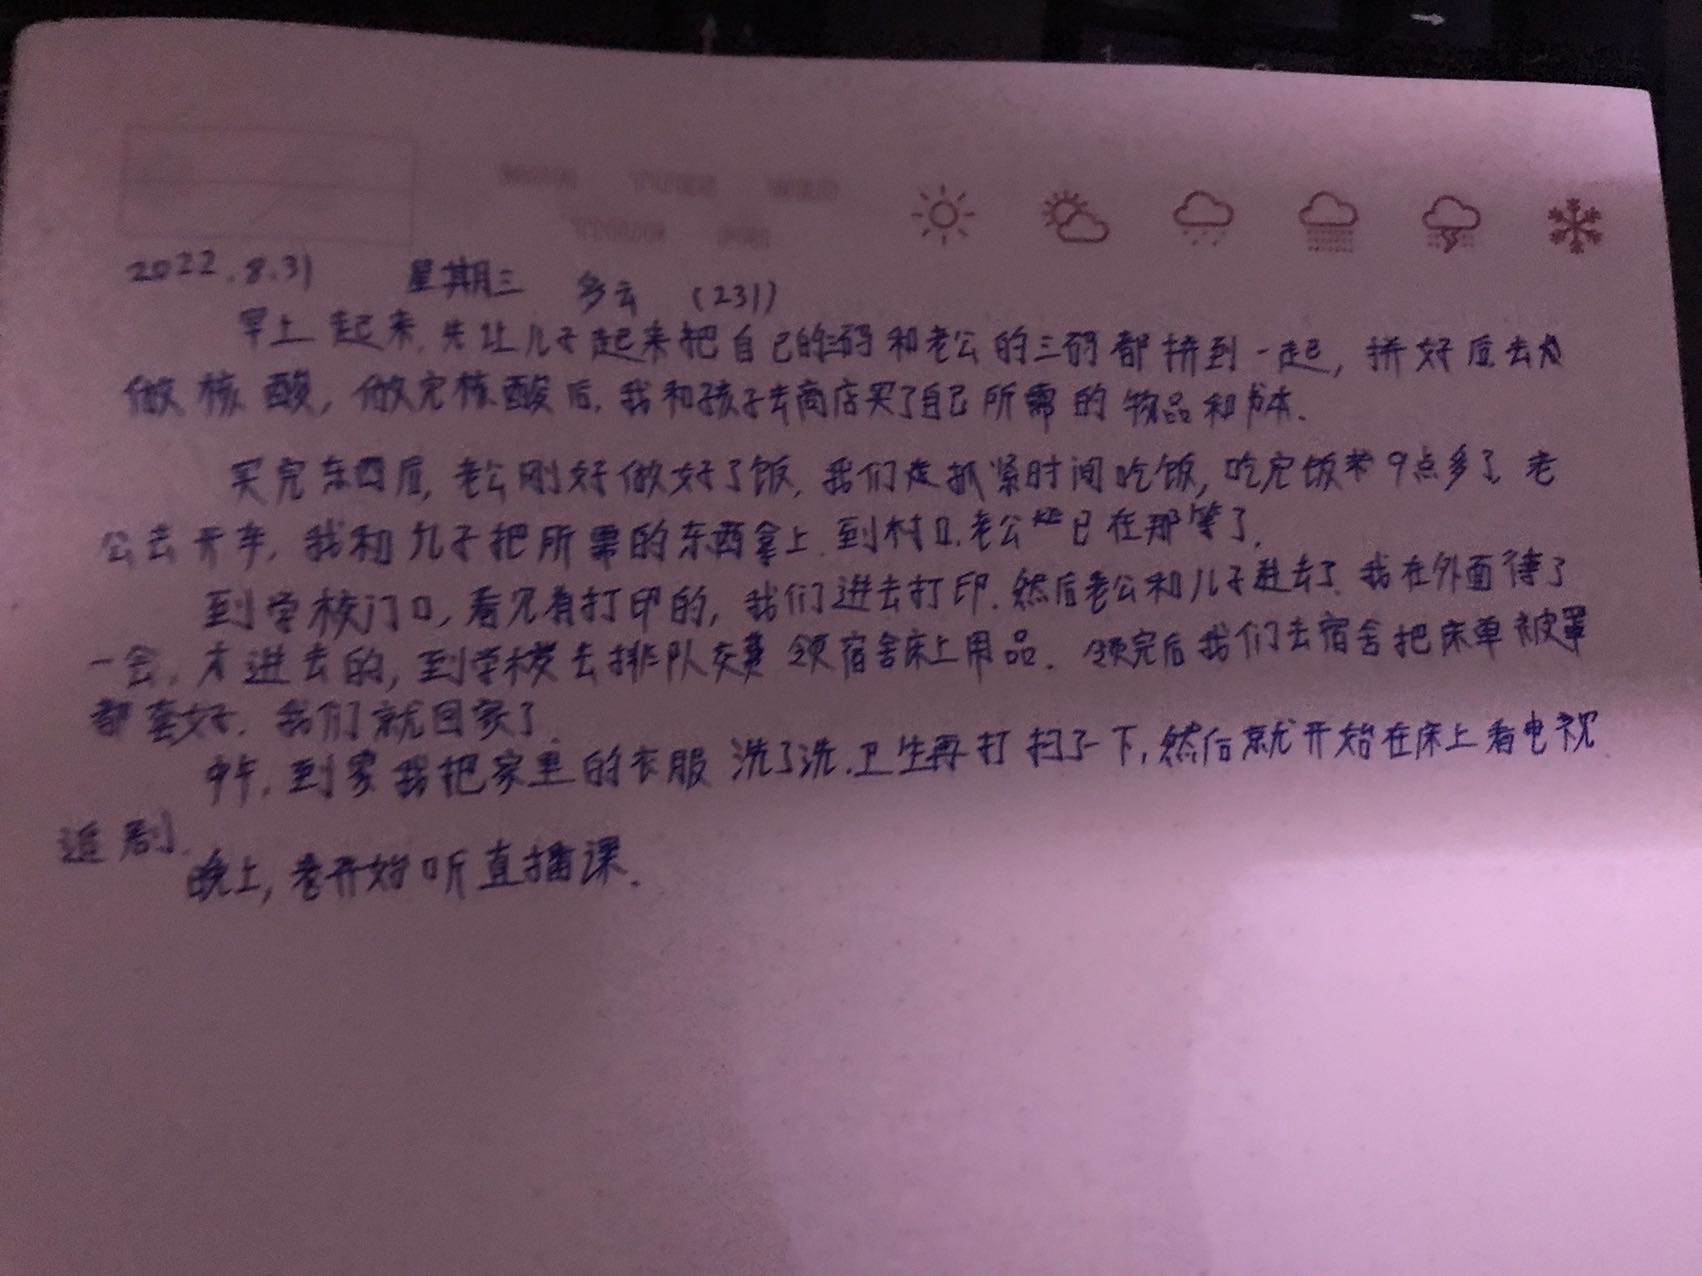 2022.8.31 星期三 多云 (231)
早上起来,先让儿子起来把自己的三码和老公的三码都拼到一起,拼好后去
做核酸,做完核酸后,我和孩子去商店买了自己所需的物品和书本.
买完东西后,老公刚好做好了饭,我们抓紧时间吃饭,吃完饭9点多了,老
公去开车,我和儿子把所需的东西拿上,到村口,老公已在那等了.
到学校门口,看见有打印的,我们进去打印.然后老公和儿子进去了,我在外面待了
一会,才进去的,到学校去排队交费 领宿舍床上用品. 领完后我们去宿舍把床单被罩
都套好,我们就回家了.
中午,到家我把家里的衣服洗了洗,卫生再打扫了一下,然后就开始在床上看电视
追剧.
晚上,开始听直播课.